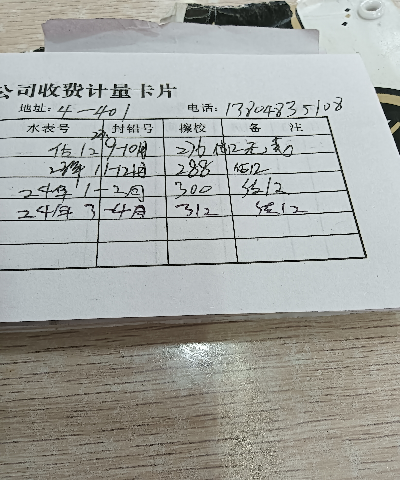 公司收费计量卡片
地址: 4-401 电话: 13804835108
水表号 封铅号 擦校 备 注
估12 9-10月 276 估12
23年 11-12月 288 估12
24年 1-2月 300 估12
24年 3-4月 312 估12